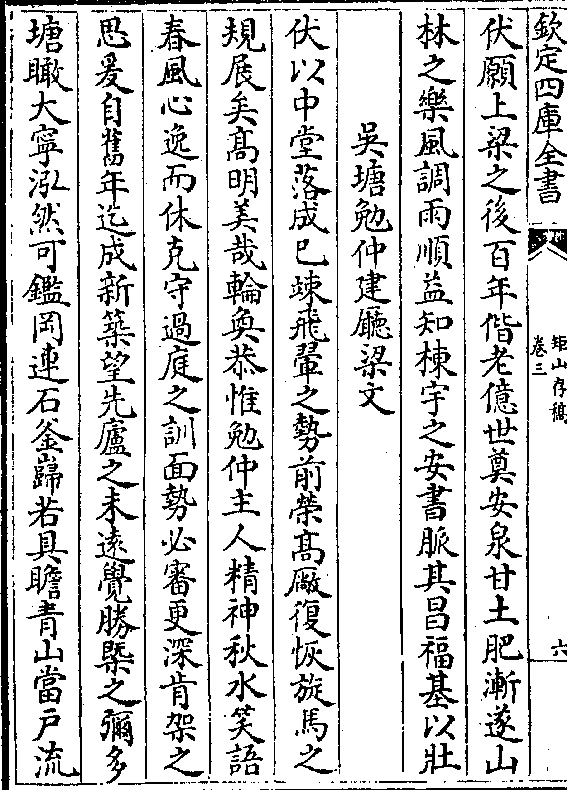 欽定四庫全書
矩山存稿
卷三
六
伏願上梁之後百年偕老億世奠安泉甘土肥漸遂山
林之樂風調雨順益知棟宇之安書脈其昌福基以壯
吳塘勉仲建廳梁文
伏以中堂落成已竦飛翬之勢前榮髙厰復恢旋馬之
規展矣髙明美哉輪奐恭惟勉仲主人精神秋水笑語
春風心逸而休克守過庭之訓面勢必審更深肯架之
思爰自舊年迄成新築望先廬之未遠覺勝槩之彌多
塘瞰大寧泓然可鑑岡連石釡巋若具瞻青山當戸流